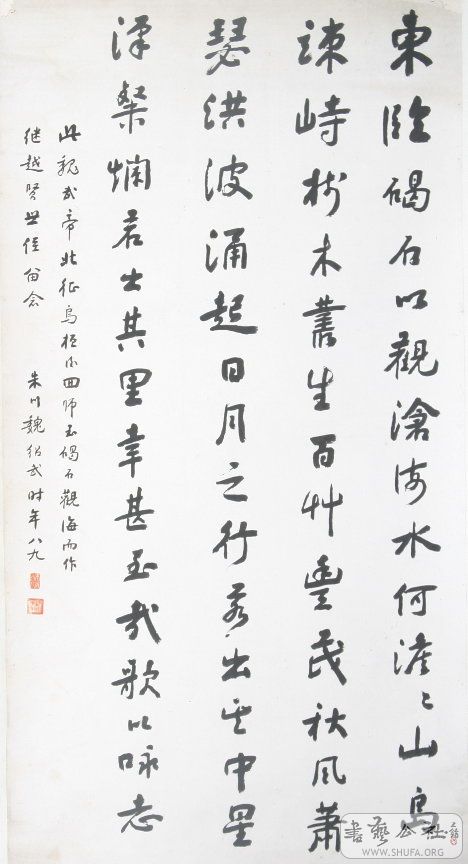 東臨碣石以觀滄海水何澹〻山島
竦峙樹木叢生百艸豐茂秋風蕭
瑟洪波涌起日月之行若出其中星
漢粲爛若出其里幸甚至哉歌以咏志
此魏武帝北征烏桓回師至碣石觀海而作
继越賢世侄留念 朱川魏紹武时年八九
書藝公社
WWW.SHUFA.ORG